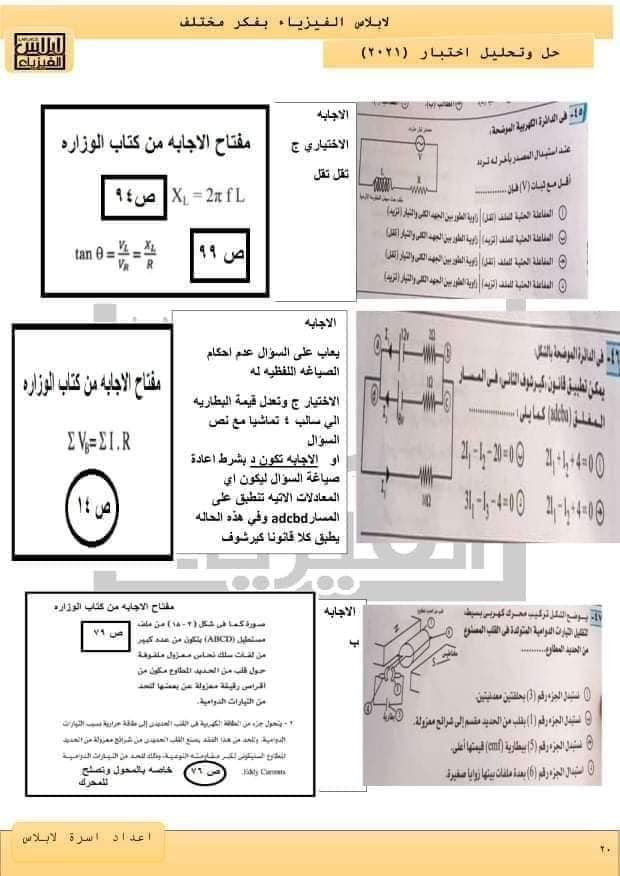 لابلاس الفيزياء بفكر مختلف
حل وتحليل اختبار (٢٠٢١)
لابلاس
الفيزياء
٤٥- في الدائرة الكهربية الموضحة،
عند استبدال المصدر بآخر له تردد
أقل مع ثبات (V) فإن ............
V
R
L
أ المفاعلة الحثية للملف (تقل) زاوية الطور بين الجهد الكلى والتيار (تزيد)
ب المفاعلة الحثية للملف (تزيد) زاوية الطور بين الجهد الكلى والتيار (تقل)
ج المفاعلة الحثية للملف (تقل) زاوية الطور بين الجهد الكلى والتيار (تقل)
د المفاعلة الحثية للملف (تزيد) زاوية الطور بين الجهد الكلى والتيار (تزيد)
الاجابه
الاختياري ج
تقل تقل
مفتاح الاجابه من كتاب الوزاره
ص ٩٤
X_L = 2π f L
tan θ = V_L/V_R = X_L/R
ص ٩٩
٤٦- في الدائرة الموضحة بالشكل:
يمكن تطبيق قانون كيرشوف الثاني، في المسار
المغلق (adcba) كما يلي: ............
أ 2I₁ + I₂ + 4 = 0
ب 2I₁ - I₂ - 20 = 0
ج 2I₁ - I₂ + 4 = 0
د 3I₁ - I₃ - 4 = 0
12v
2Ω
1Ω
10Ω
الاجابه
يعاب على السؤال عدم احكام
الصياغه اللفظيه له
الاختيار ج وتعدل قيمة البطاريه
الي سالب ٤ تماشيا مع نص
السؤال
او الاجابه تكون د بشرط اعادة
صياغة السؤال ليكون اي
المعادلات الاتيه تنطبق على
المسار adcbd وفي هذه الحاله
يطبق كلا قانونا كيرشوف
مفتاح الاجابه من كتاب الوزاره
ΣV_B = ΣI . R
ص ١٤
٤٧- يوضح الشكل تركيب محرك كهربي بسيط،
لتقليل التيارات الدوامية المتولدة في القلب المصنوع
من الحديد المطاوع............
أ استبدال الجزء رقم (3) بحلقتين معدنيتين.
ب استبدال الجزء رقم (1) بقلب من الحديد مقسم إلى شرائح معزولة.
ج استبدال الجزء رقم (5) ببطارية (emf) قيمتها أعلى.
د استبدال الجزء رقم (6) بعدة ملفات بينها زوايا صغيرة.
الاجابه
ب
مفتاح الاجابه من كتاب الوزاره
ص ٧٩
صورة كما في شكل (٢ - ١٨) من ملف
مستطيل (ABCD) يتكون من عدد كبير
من لفات سلك نحاس معزول ملفوفة
حول قلب من الحديد المطاوع مكون من
اقراص رقيقة معزولة عن بعضها للحد
من التيارات الدوامية.
٢ - يتحول جزء من الطاقة الكهربية في القلب الحديدى إلى طاقة حرارية بسبب التيارات
الدوامية. وللحد من هذا الفقد يصنع القلب الحديدى من شرائح معزولة من الحديد
المطاوع السيليكونى لكبر مقاومته النوعية، وذلك للحد من التيارات الدوامية
Eddy Currents.
ص ٧٦
خاصه بالمحول وتصلح
للمحرك
اعداد اسرة لابلاس
٢٠